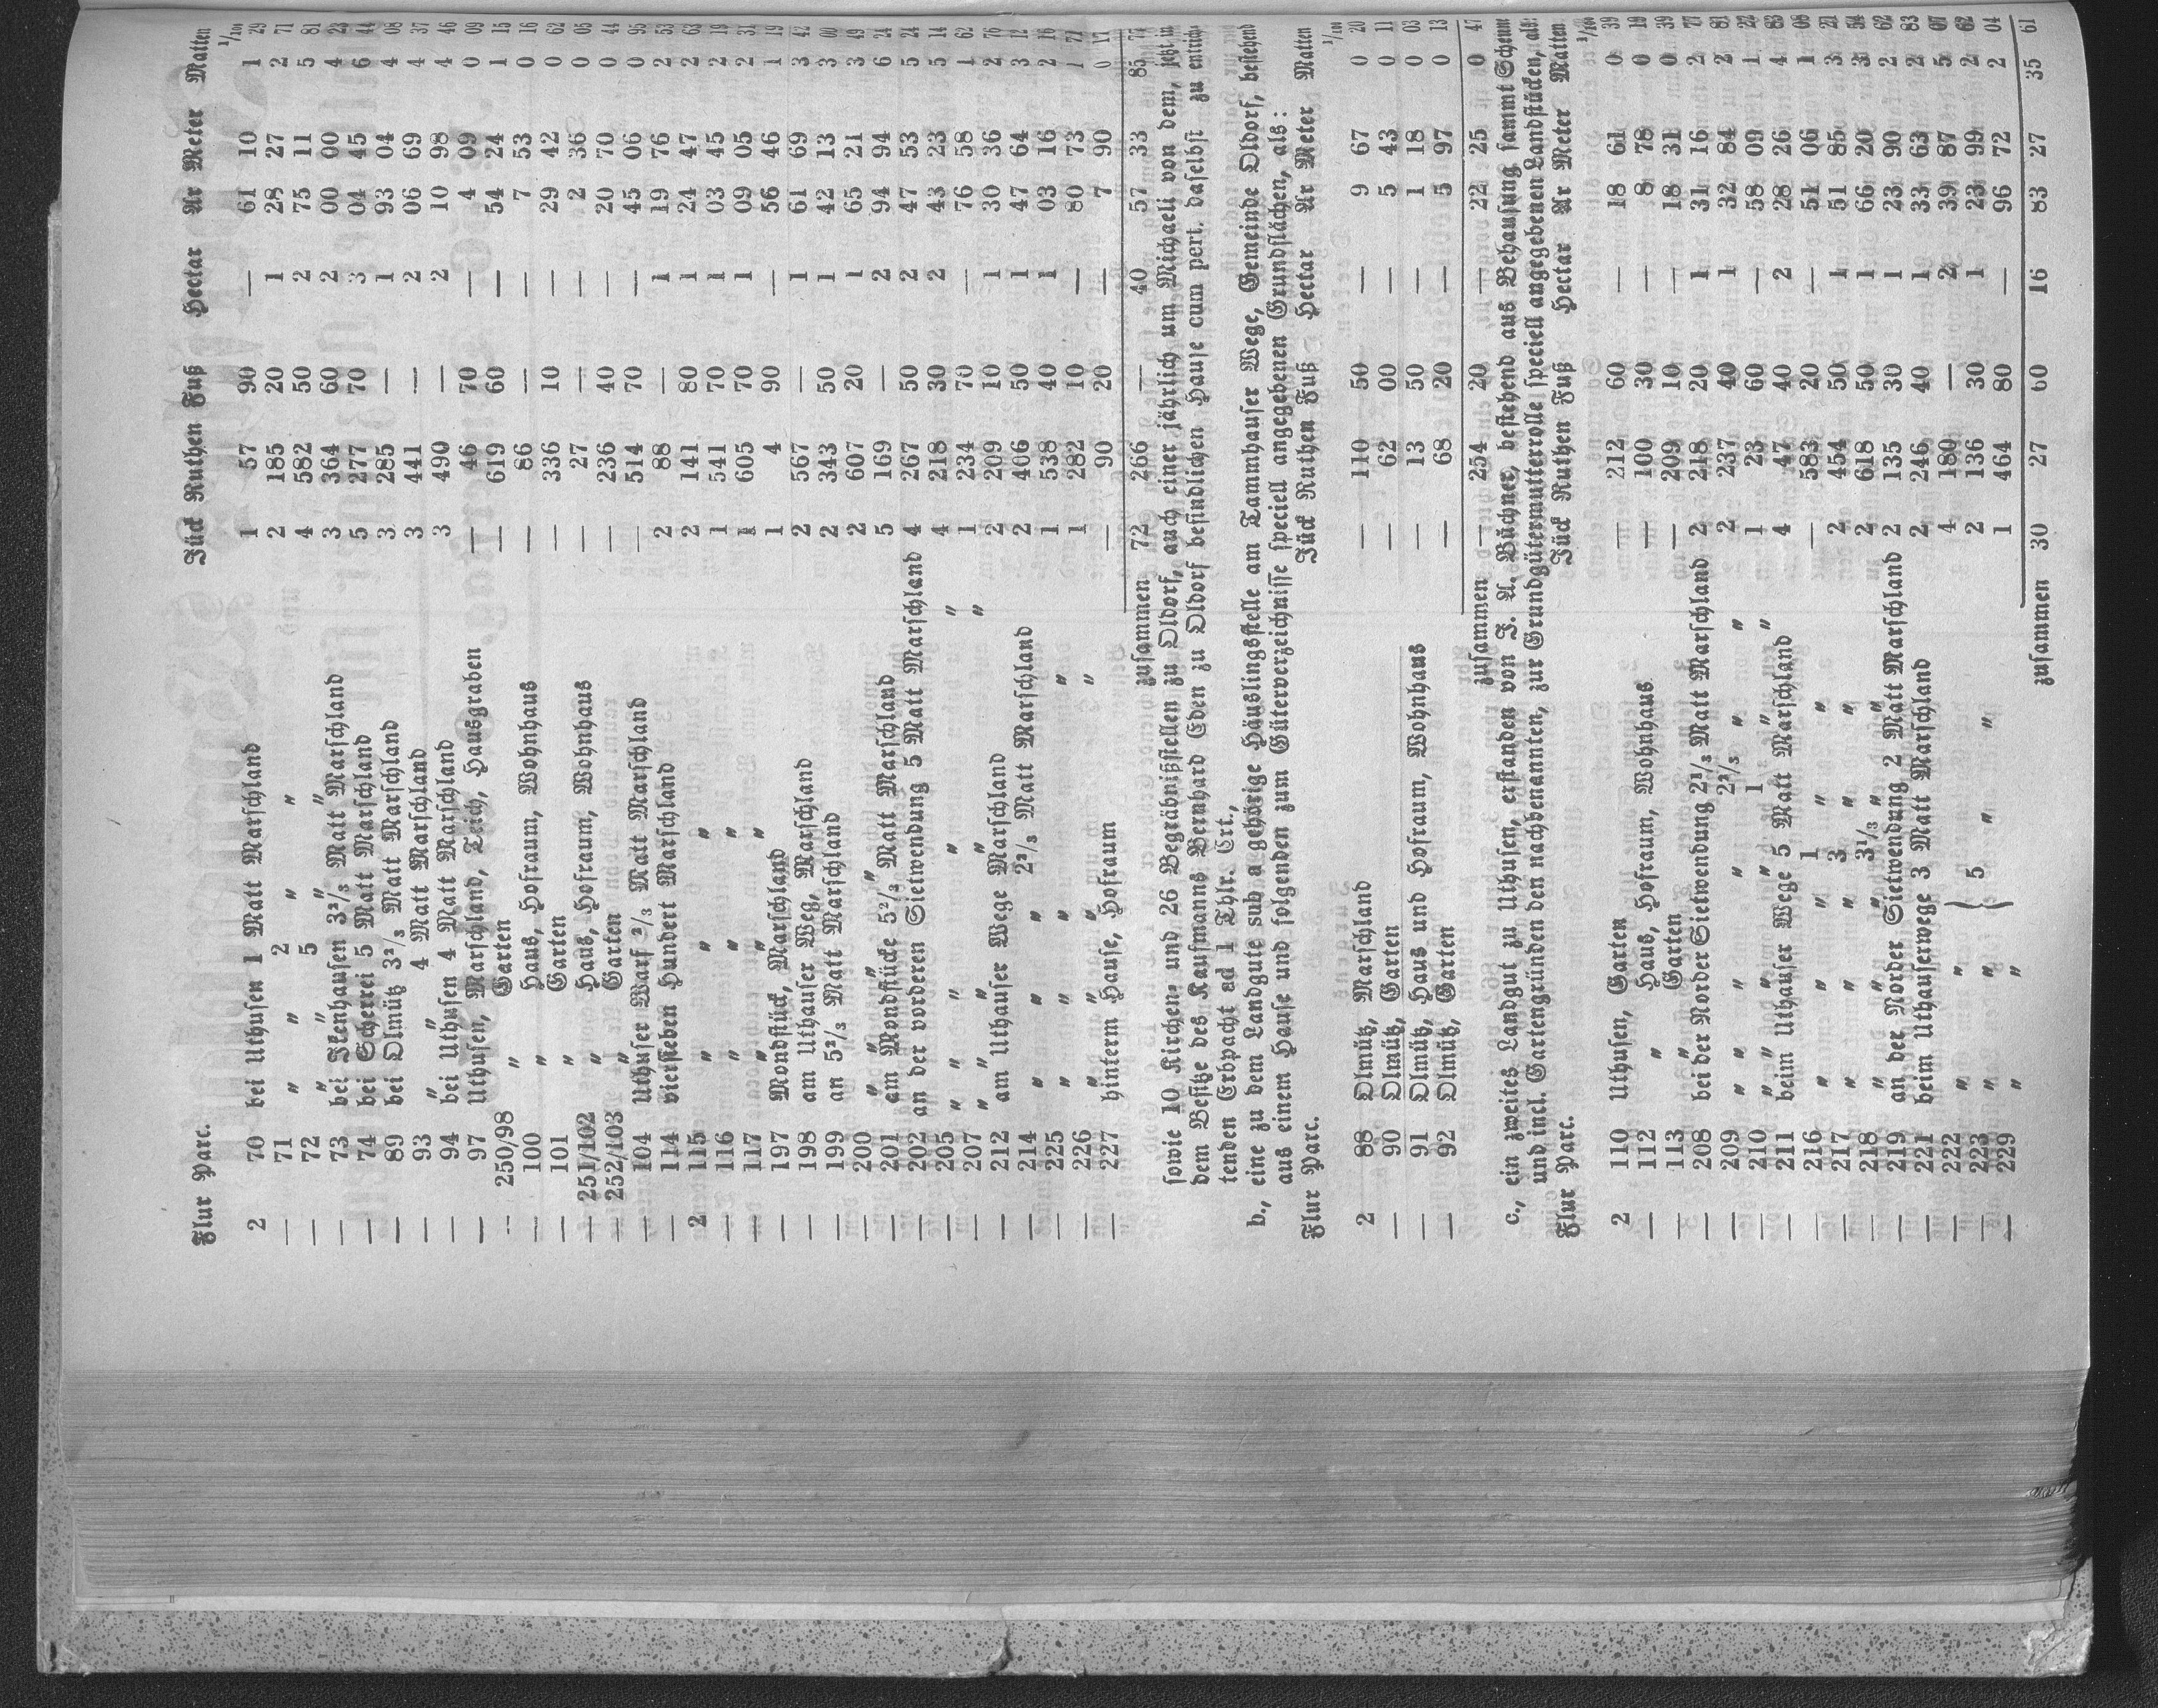 Flur Parc. Jück Ruthen Fuß Hectar Ar Meter Matten
1/100
2 70 bei Uthusen 1 Matt Marschland 1 57 90 — 61 10 1 29
— 71 „ „ 2 „ „ 2 185 20 1 28 27 2 71
— 72 „ „ 5 „ „ 4 582 50 2 75 11 5 81
— 73 bei Ikenhausen 3 2/3 Matt Marschland 3 364 60 2 00 00 4 23
— 74 bei Scherei 5 Matt Marschland 5 277 70 3 04 45 6 44
— 89 bei Olmütz 3 2/3 Matt Marschland 3 285 — 1 93 04 4 08
— 93 „ „ 4 Matt Marschland 3 441 — 2 06 69 4 37
— 94 bei Uthusen 4 Matt Marschland 3 490 — 2 10 98 4 46
— 97 Uthusen, Marschland, Teich, Hausgraben — 46 70 — 4 09 0 09
— 250/98 „ Garten — 619 60 — 54 24 1 15
— 100 „ Haus, Hofraum, Wohnhaus — 86 — — 7 53 0 16
— 101 „ Garten — 336 10 — 29 42 0 62
— 251/102 „ Haus, Hofraum, Wohnhaus — 27 — — 2 36 0 05
— 252/103 „ Garten — 236 40 — 20 70 0 44
— 104 Uthuser Warf 2/3 Matt Marschland — 514 70 — 45 06 0 95
— 114 viersieben Hundert Marschland 2 88 — 1 19 76 2 53
2 115 „ „ „ 2 141 80 1 24 47 2 63
— 116 „ „ „ 1 541 70 1 03 45 2 19
— 117 „ „ „ 1 605 70 1 09 05 2 31
— 197 Mondstück, Marschland 1 4 90 — 56 46 1 19
— 198 am Uthauser Weg, Marschland 2 567 — 1 61 69 3 42
— 199 an 5 2/3 Matt Marschland 2 343 50 1 42 13 3 00
— 200 „ „ „ 2 607 20 1 65 21 3 49
— 201 am Mondstücke 5 2/3 Matt Marschland 5 169 — 2 94 94 6 24
— 202 an der vorderen Sietwendung 5 Matt Marschland 4 267 50 2 47 53 5 24
— 205 „ „ „ „ „ 4 218 30 2 43 23 5 14
— 207 „ „ „ „ „ 1 234 70 — 76 58 1 62
— 212 am Uthauser Wege Marschland 2 209 10 1 30 36 2 76
— 214 „ „ „ 2 2/3 Matt Marschland 2 406 50 1 47 64 3 12
— 225 „ „ „ „ 1 538 40 1 03 16 2 16
— 226 „ „ „ „ 1 282 10 — 80 73 1 71
— 227 hinterm Hause, Hofraum — 90 20 — 7 90 0 17
zusammen 72 266 — 40 57 33 85
sowie 10 Kirchen- und 26 Begräbnißstellen zu Oldorf, auch einer jährlich um Michaeli von dem, jetzt in
dem Besitze des Kaufmanns Bernhard Eden zu Oldorf befindlichen Hause cum pert. daselbst zu entrich-
tenden Erbpacht ad 1 Thlr. Crt,
b., eine zu dem Landgute sub a gehörige Häuslingsstelle am Tammhauser Wege, Gemeinde Oldorf, bestehend
aus einem Hause und folgenden zum Güterverzeichnisse speciell angegebenen Grundflächen, als:
Flur Parc. Jück Ruthen Fuß Hectar Ar Meter Matten
1/100
2 88 Olmütz, Marschland — 110 50 — 9 67 0 20
— 90 Olmütz, Garten — 62 00 — 5 43 0 11
— 91 Olmütz, Haus und Hofraum, Wohnhaus — 13 50 — 1 18 0 03
— 92 Olmütz, Garten — 68 20 — 5 97 0 13
zusammen — 254 20 — 22 25 0 47
c., ein zweites Landgut zu Uthusen, erstanden von J. A. Büchner, bestehend aus Behausung sammt Scheune
und incl. Gartengründen den nachbenannten, zur Grundgütermutterrolle speciell angegebenen Landstücken, als:
Flur Parc. Jück Ruthen Fuß Hectar Ar Meter Matten
1/100
2 110 Uthusen, Garten — 212 60 — 18 61 0 39
— 112 „ Haus, Hofraum, Wohnhaus — 100 30 — 8 78 0 19
— 113 „ Garten — 209 10 — 18 31 0 39
— 208 bei der Norder Sietwendung 2 1/3 Matt Marschland 2 218 20 1 31 16 2 77
— 209 „ „ „ „ 2 2/3 „ „ 2 237 40 1 32 84 2 81
— 210 „ „ „ „ 1 „ „ 1 23 60 — 58 09 1 22
— 211 beim Uthauser Wege 5 Matt Marschland 4 47 40 2 28 26 4 83
— 216 „ „ „ 1 „ „ — 583 20 — 51 06 1 08
— 217 „ „ „ 3 „ „ 2 454 50 1 51 85 3 21
— 218 „ „ „ 3 1/3 „ „ 2 618 50 1 66 20 3 54
— 219 an der Norder Sietwendung 2 Matt Marschland 2 135 30 1 23 90 2 62
— 221 beim Uthauserwege 3 Matt Marschland 2 246 40 1 33 63 2 83
— 222 „ „ } 4 180 — 2 39 87 5 07
— 223 „ „ } 5 „ „ 2 136 30 1 23 99 2 62
— 229 „ „ 1 464 80 — 96 72 2 04
zusammen 30 27 60 16 83 27 35 61